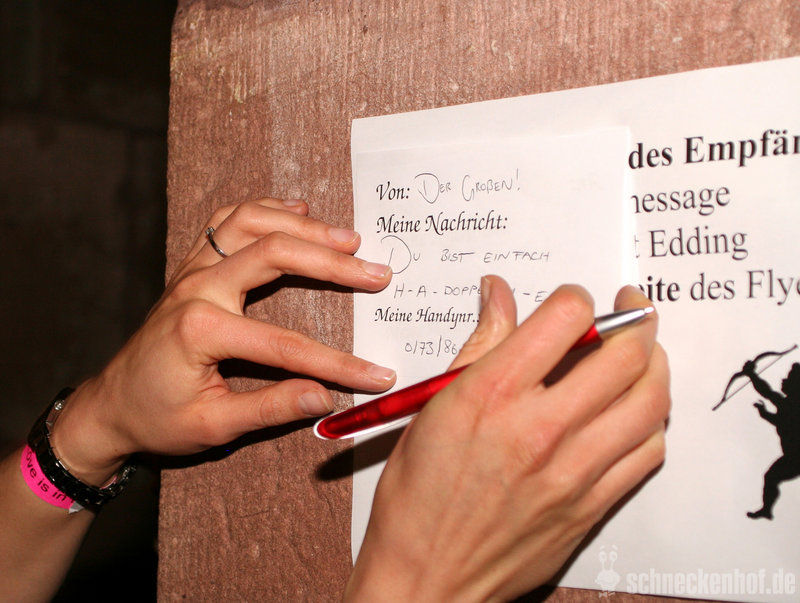 Von: DER GROßEN!
Meine Nachricht:
DU BIST EINFACH
H-A-DOPPE
Meine Handynr.:
0173/86
des Empfän
message
t Edding
eite des Flye
ove is in
schneckenhof.de